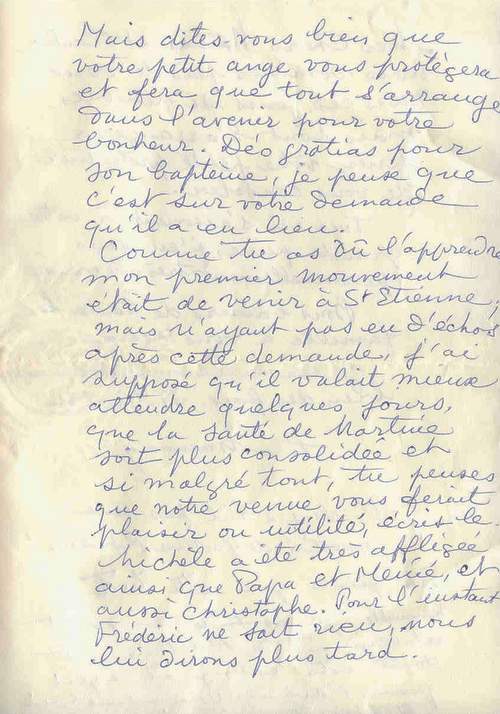 Mais dites-vous bien que
votre petit ange vous protègera
et fera que tout s'arrange
dans l'avenir pour votre
bonheur. Déo gratias pour
son baptême, je pense que
c'est sur votre demande
qu'il a eu lieu.
Comme tu as dû l'apprendre
mon premier mouvement
était de venir à St Etienne,
mais n'ayant pas eu d'échos
après cette demande, j'ai
supposé qu'il valait mieux
attendre quelques jours,
que la santé de Martine
soit plus consolidée et
si malgré tout, tu penses
que notre venue vous ferait
plaisir ou utilité, écris le
Michèle a été très affligée
ainsi que Papa et Mémé, et
aussi Christophe. Pour l'instant
Frédéric ne sait rien, nous
lui dirons plus tard.